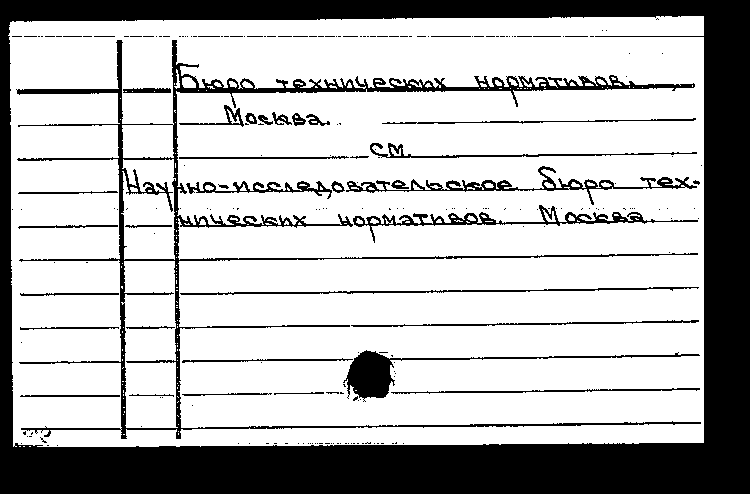 Бюро технических нормативов.
Москва.
см.
Научно-исследовательское бюро тех-
нических нормативов. Москва.